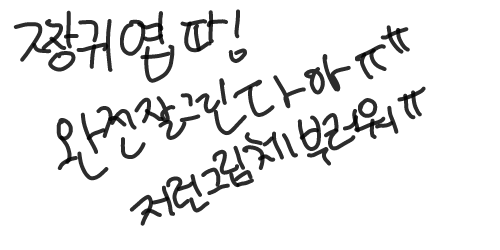 짱귀엽따!
완전잘그린다아ㅠㅠ
저런그림체부러워ㅠ